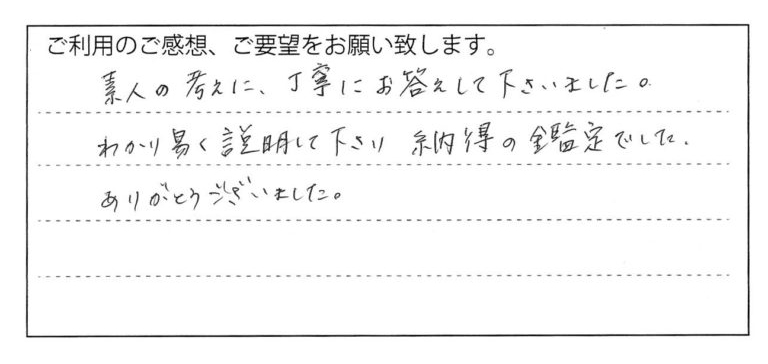 ご利用のご感想、ご要望をお願い致します。
素人の考えに、丁寧にお答えして下さいました。
わかり易く説明して下さり 納得の鑑定でした.
ありがとうございました。